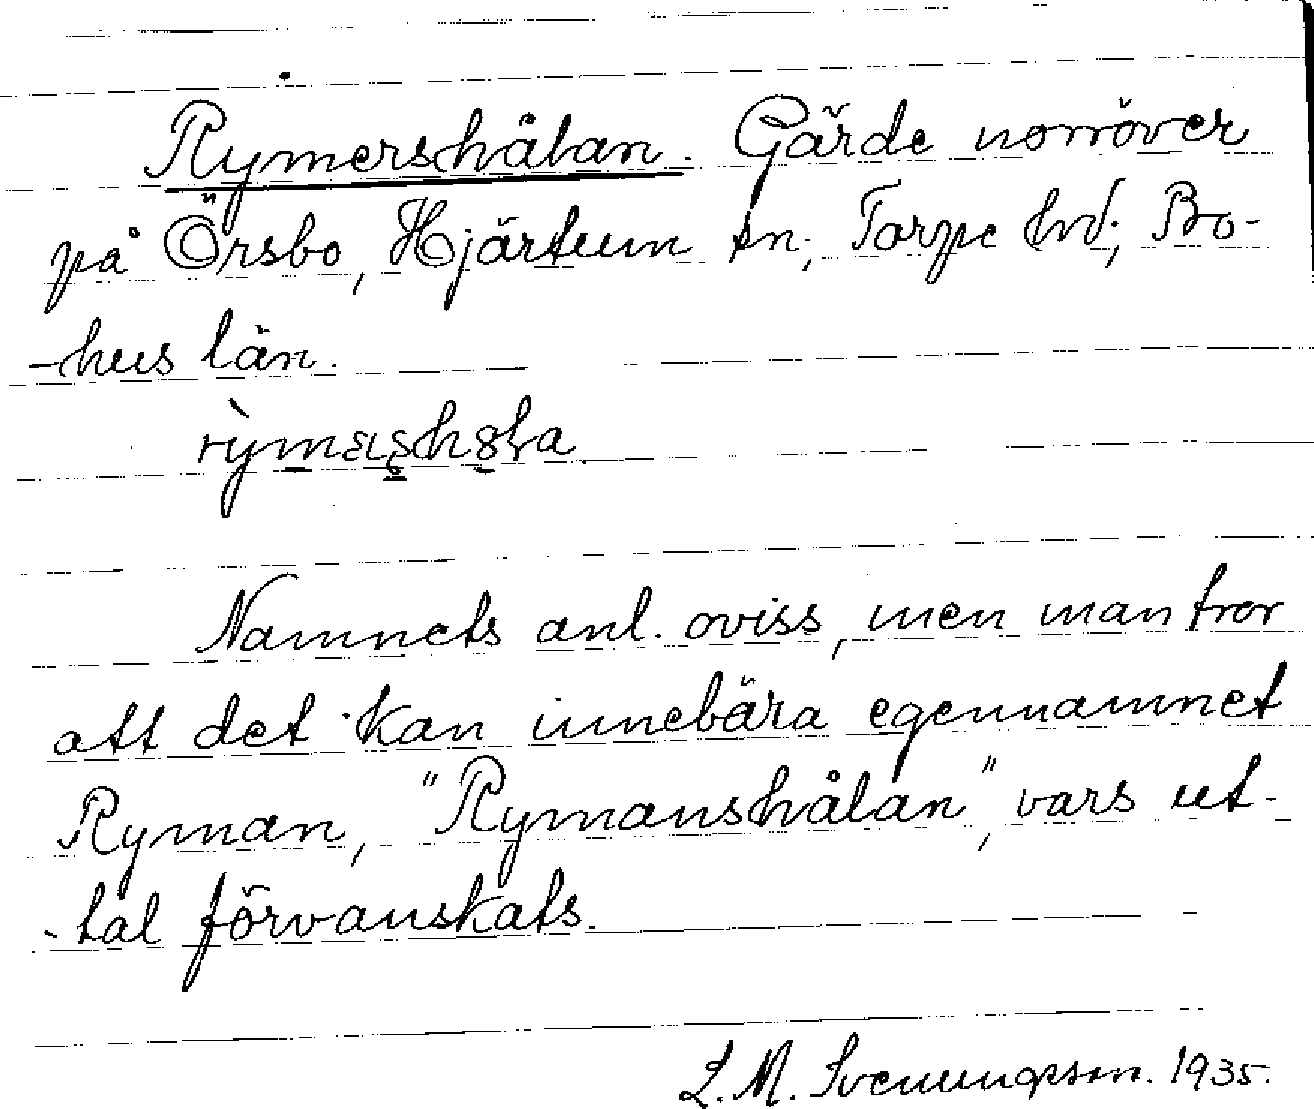 Rymershålan. Gärde norröver
på Örsbo, Hjärtum sn; Torpe hd; Bo-
-hus län.
Namnets anl. oviss, men man tror
att det kan innebära egennamnet
Ryman, "Rymanshålan", vars ut-
-tal förvanskats.
L. M. Svenungsson. 1935.